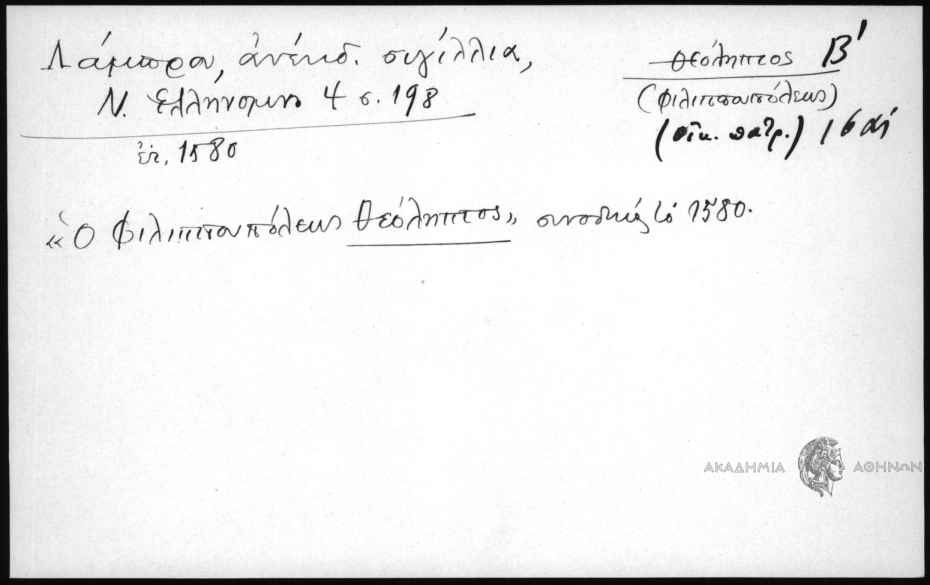 Λάμπρου, ἀνέκδ. σιγίλλια,
Ν. Ἑλληνομν 4 σ. 198
ἐν ἔτ. 1580
Θεόληπτος Β'
(Φιλιππουπόλεως)
(οἰκ. πατρ.) 16 αἰ
«Ὁ Φιλιππουπόλεως Θεόληπτος», συνοδικῶς τῷ 1580.
ΑΚΑΔΗΜΙΑ ΑΘΗΝΩΝ